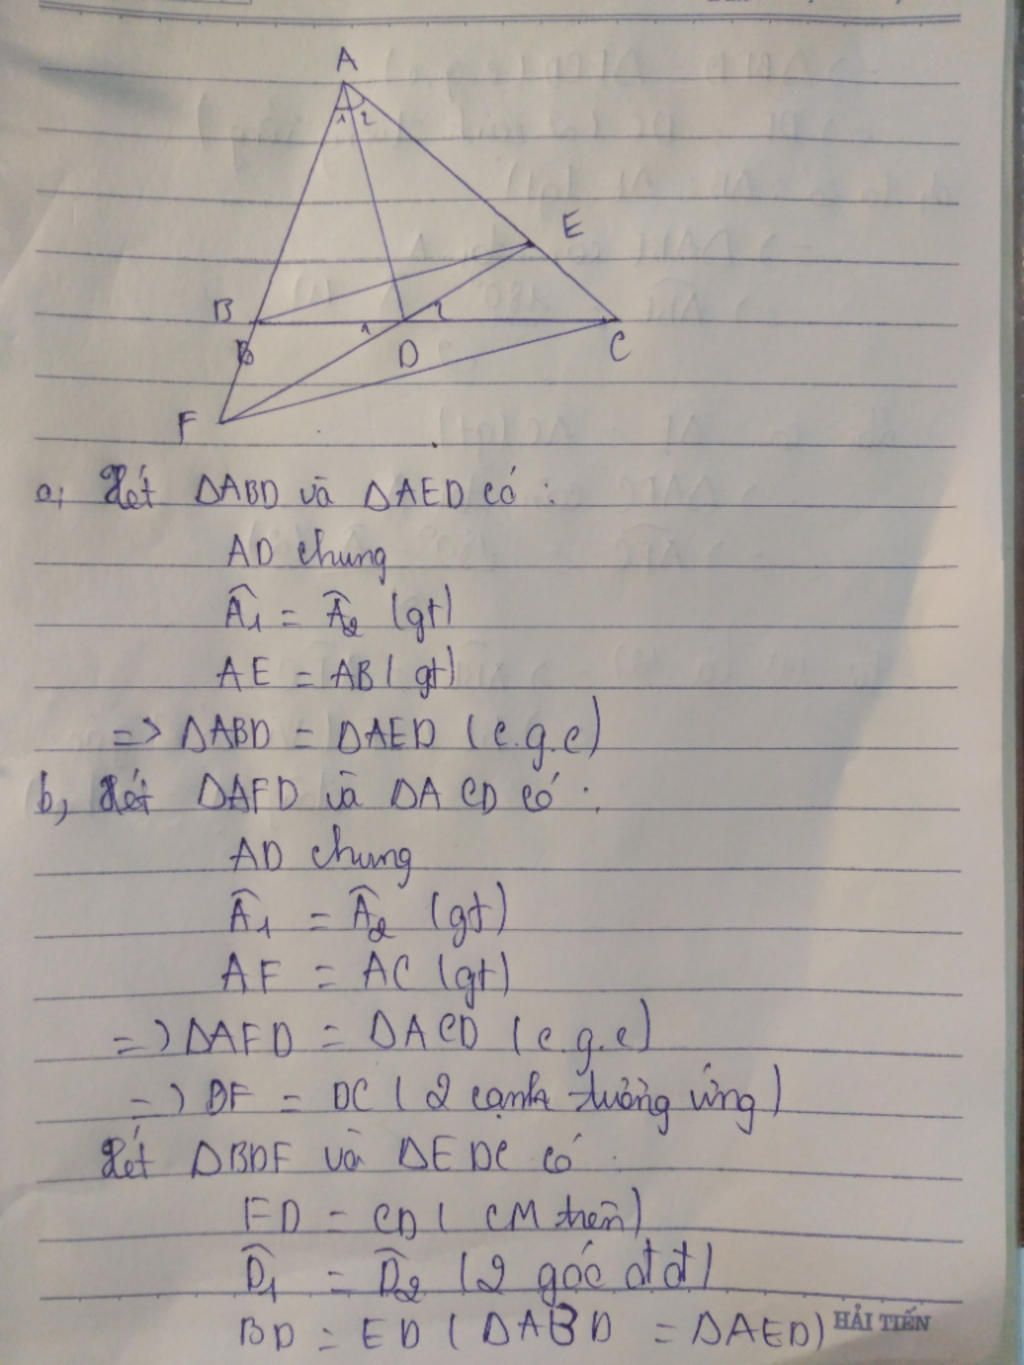 A
1 2
E
B
1 2
B
D
C
F
a, Xét ΔABD và ΔAED có :
AD chung
Â1 = Â2 (gt)
AE = AB (gt)
=> ΔABD = ΔAED (c.g.c)
b, Xét ΔAFD và ΔACD có :
AD chung
Â1 = Â2 (gt)
AF = AC (gt)
=> ΔAFD = ΔACD (c.g.c)
=> DF = DC (2 cạnh tương ứng)
Xét ΔBDF và ΔEDC có
FD = CD ( CM trên)
D̂1 = D̂2 (2 góc đđ)
BD = ED (ΔABD = ΔAED)
HẢI TIẾN